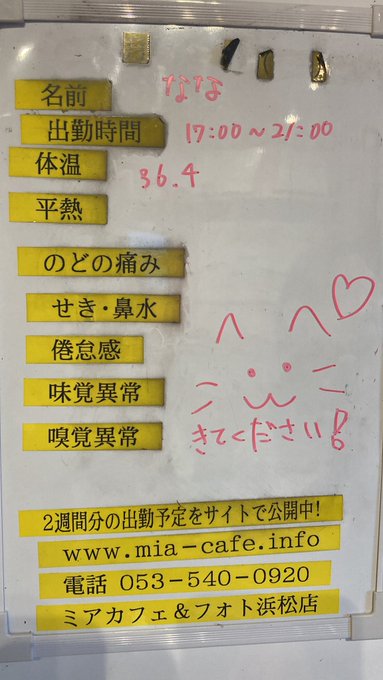 名前 ななな
出勤時間 17:00～21:00
体温 36.4
平熱
のどの痛み
せき・鼻水
倦怠感
味覚異常
嗅覚異常
きてください!
2週間分の出勤予定をサイトで公開中!
www.mia-cafe.info
電話 053-540-0920
ミアカフェ＆フォト浜松店